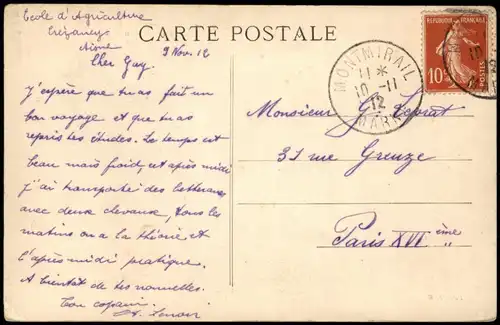 Ecole d'Agriculture
Crézancy
Aisne
9 Nov. 12
CARTE POSTALE
Cher Guy.
J'espère que tu as fait un
bon voyage et que tu as
repris tes études. Le temps est
beau mais froid, cet après midi
j'ai transporté des betteraves
avec deux chevaux, tous les
matins on a la théorie, et
l'après midi pratique.
A bientôt de tes nouvelles.
Ton copain.
MONTMIRAIL
11 *
10 -11
12
MARNE
REPUBLIQUE FRANÇAISE
10c
POSTES
Monsieur G.
31 rue Greuze
Paris XVI ème